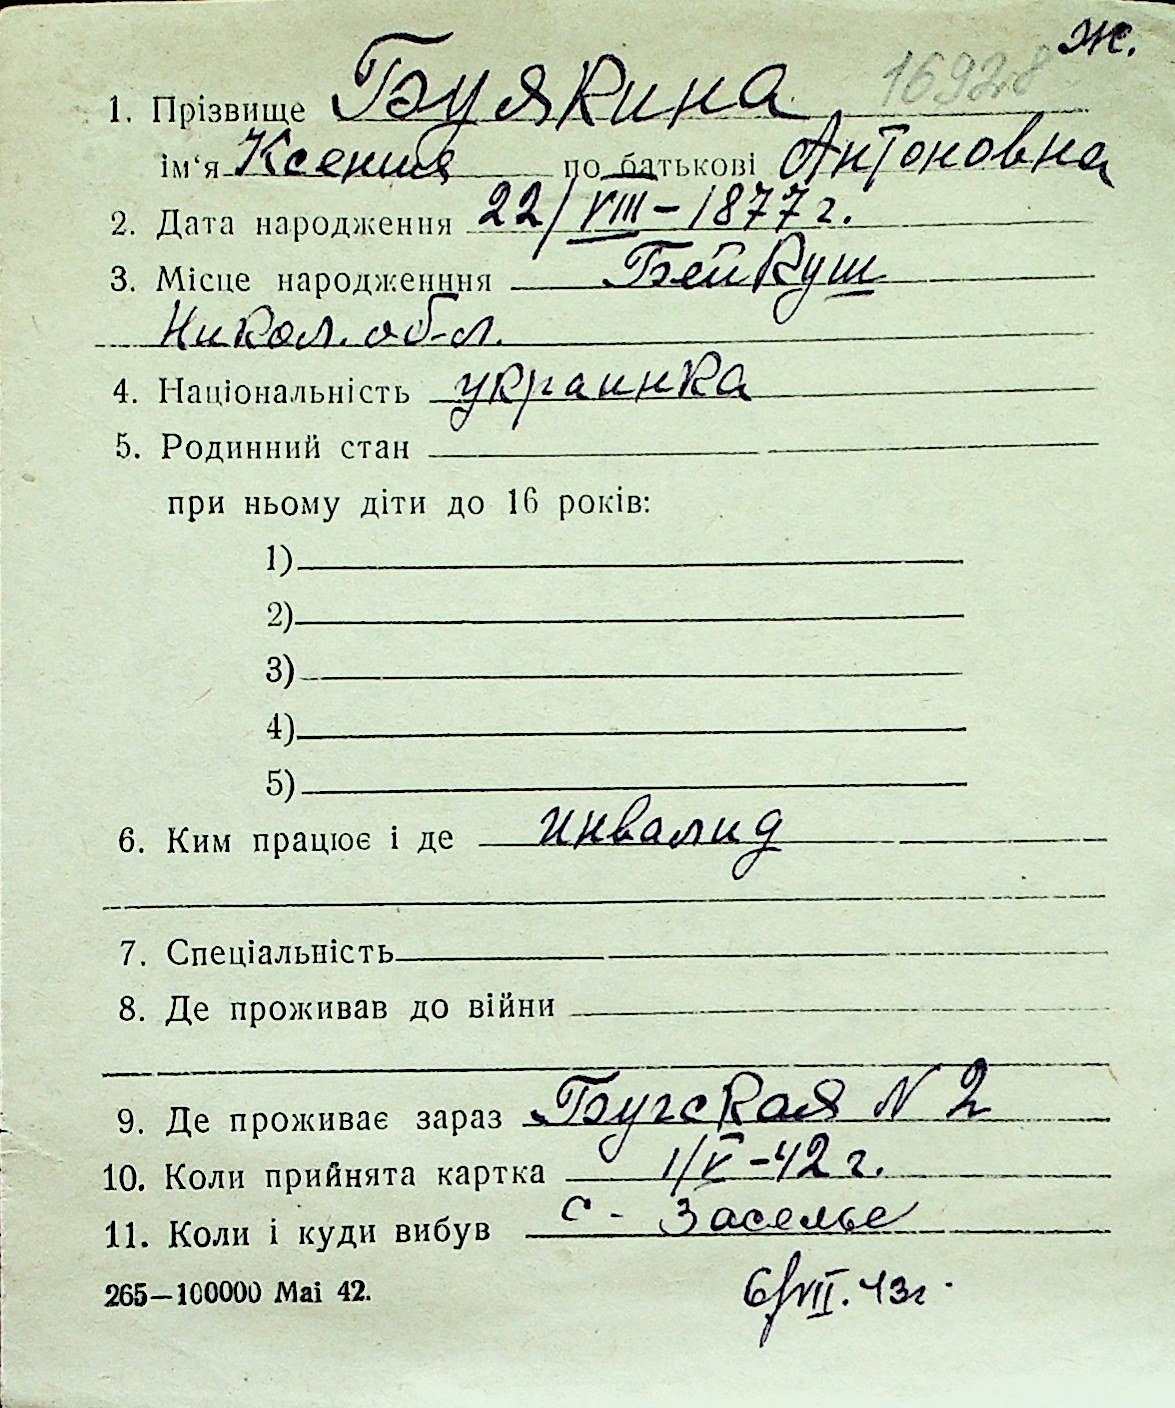 ж.
16928
1. Прізвище Буякина
ім'я Ксения по батькові Антоновна
2. Дата народження 22/VIII – 1877 г.
3. Місце народженння Бейкуш
Никол. об-л.
4. Національність украинка
5. Родинний стан
при ньому діти до 16 років:
1)
2)
3)
4)
5)
6. Ким працює і де инвалид
7. Спеціальність
8. Де проживав до війни
9. Де проживає зараз Бугская N 2
10. Коли прийнята картка 1/V – 42 г.
11. Коли і куди вибув с - Заселье
265—100000 Mai 42.
6/VII. 43г.